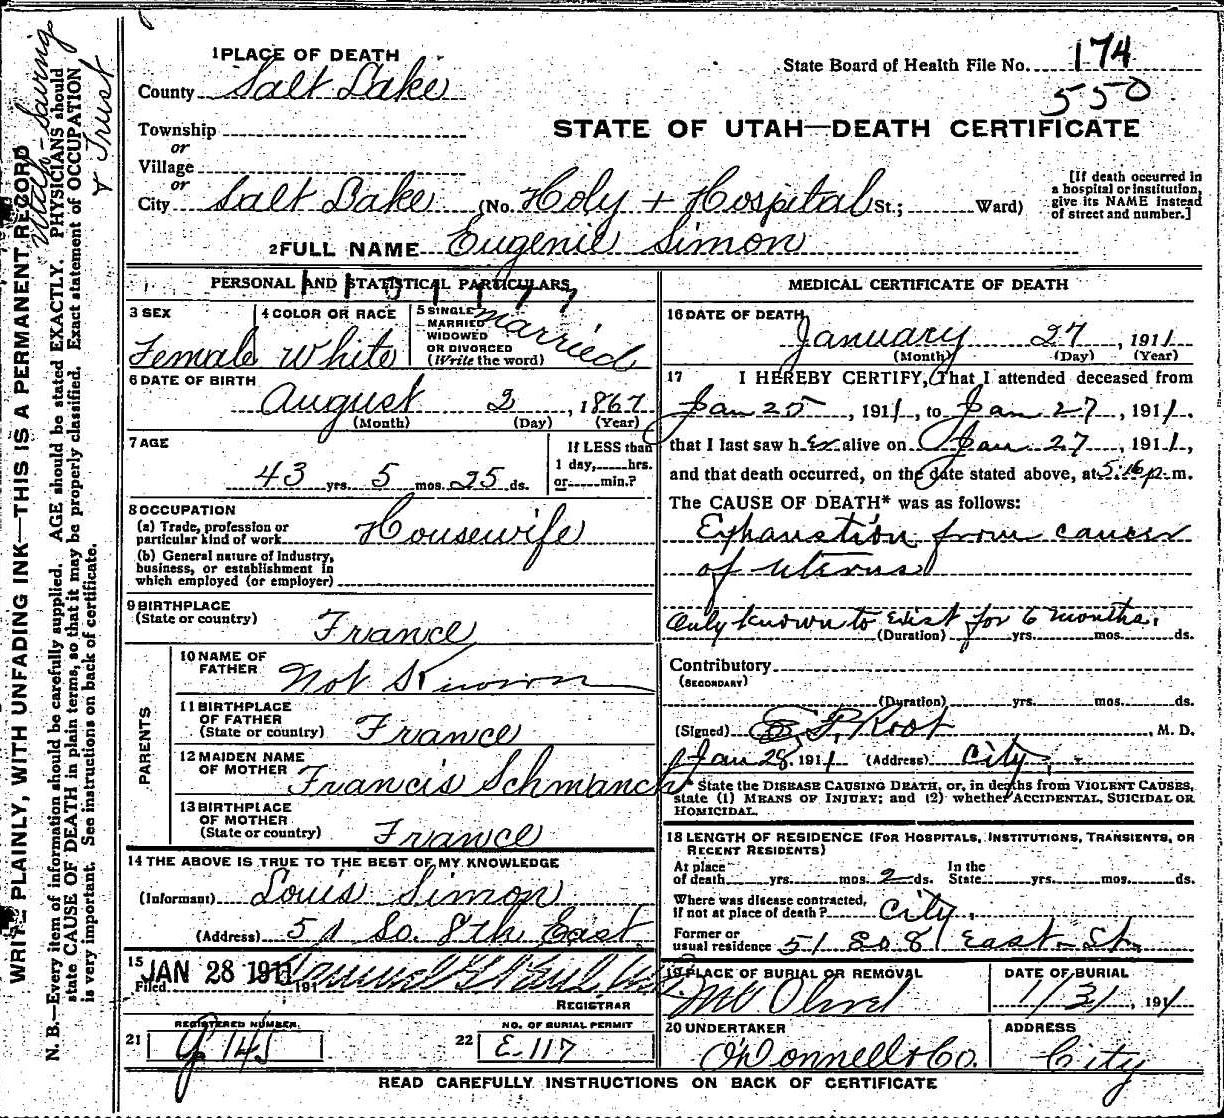 1 PLACE OF DEATH
County Salt Lake
State Board of Health File No. 174
550
Township
or
Village
or
STATE OF UTAH—DEATH CERTIFICATE
City Salt Lake (No. Holy + Hospital St.; Ward)
[If death occurred in
a hospital or institution,
give its NAME instead
of street and number.]
2 FULL NAME Eugenie Simon
PERSONAL AND STATISTICAL PARTICULARS
3 SEX
Female
4 COLOR OR RACE
White
5 SINGLE
MARRIED
WIDOWED
OR DIVORCED
(Write the word)
married
6 DATE OF BIRTH
August 2, 1867
(Month) (Day) (Year)
7 AGE
43 yrs. 5 mos. 25 ds.
If LESS than
1 day, hrs.
or min.?
8 OCCUPATION
(a) Trade, profession or
particular kind of work Housewife
(b) General nature of industry,
business, or establishment in
which employed (or employer)
9 BIRTHPLACE
(State or country) France
PARENTS
10 NAME OF
FATHER Not Known
11 BIRTHPLACE
OF FATHER
(State or country) France
12 MAIDEN NAME
OF MOTHER Francis Schmanck
13 BIRTHPLACE
OF MOTHER
(State or country) France
14 THE ABOVE IS TRUE TO THE BEST OF MY KNOWLEDGE
(Informant) Louis Simon
(Address) 51 So. 8th East
15
Filed JAN 28 1911 191
REGISTRAR
21 REGISTERED NUMBER
145
22 NO. OF BURIAL PERMIT
E 117
MEDICAL CERTIFICATE OF DEATH
16 DATE OF DEATH
January 27, 1911
(Month) (Day) (Year)
17 I HEREBY CERTIFY, That I attended deceased from
Jan 25, 1911, to Jan 27, 1911,
that I last saw her alive on Jan 27, 1911,
and that death occurred, on the date stated above, at 5:16 p. m.
The CAUSE OF DEATH* was as follows:
Exhaustion from cancer
of uterus
Only known to exist for 6 months.
(Duration) yrs. mos. ds.
Contributory
(SECONDARY)
(Duration) yrs. mos. ds.
(Signed) E. P. Root, M. D.
Jan 28, 1911 (Address) City
* State the DISEASE CAUSING DEATH, or, in deaths from VIOLENT CAUSES,
state (1) MEANS OF INJURY; and (2) whether ACCIDENTAL, SUICIDAL OR
HOMICIDAL.
18 LENGTH OF RESIDENCE (FOR HOSPITALS, INSTITUTIONS, TRANSIENTS, OR
RECENT RESIDENTS)
At place
of death yrs. mos. 2 ds.
In the
State yrs. mos. ds.
Where was disease contracted,
if not at place of death? City.
Former or
usual residence 51 So 8 East St.
19 PLACE OF BURIAL OR REMOVAL
Mt Olivet
DATE OF BURIAL
1/31, 1911
20 UNDERTAKER
O'Donnell & Co.
ADDRESS
City
READ CAREFULLY INSTRUCTIONS ON BACK OF CERTIFICATE
WRITE PLAINLY, WITH UNFADING INK—THIS IS A PERMANENT RECORD
N. B.—Every item of information should be carefully supplied. AGE should be stated EXACTLY. PHYSICIANS should
state CAUSE OF DEATH in plain terms, so that it may be properly classified. Exact statement of OCCUPATION
is very important. See instructions on back of certificate.
Saving
& Trust